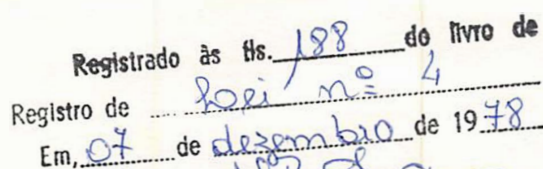 Registrado às fls. 188 do livro de
Registro de Lei nº 4
Em, 07 de dezembro de 1978